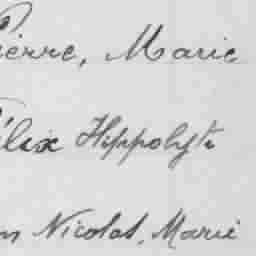 Pierre, Marie
Félix Hippolyte
Nicolas, Marie